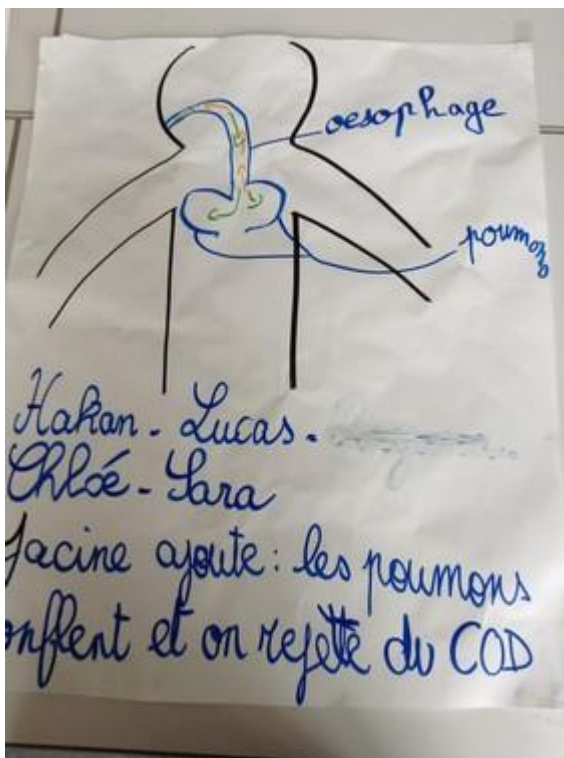 oesophage
poumons
Hakan - Lucas -
Chloé - Sara
Jacine ajoute : les poumons
onflent et on rejette du COD